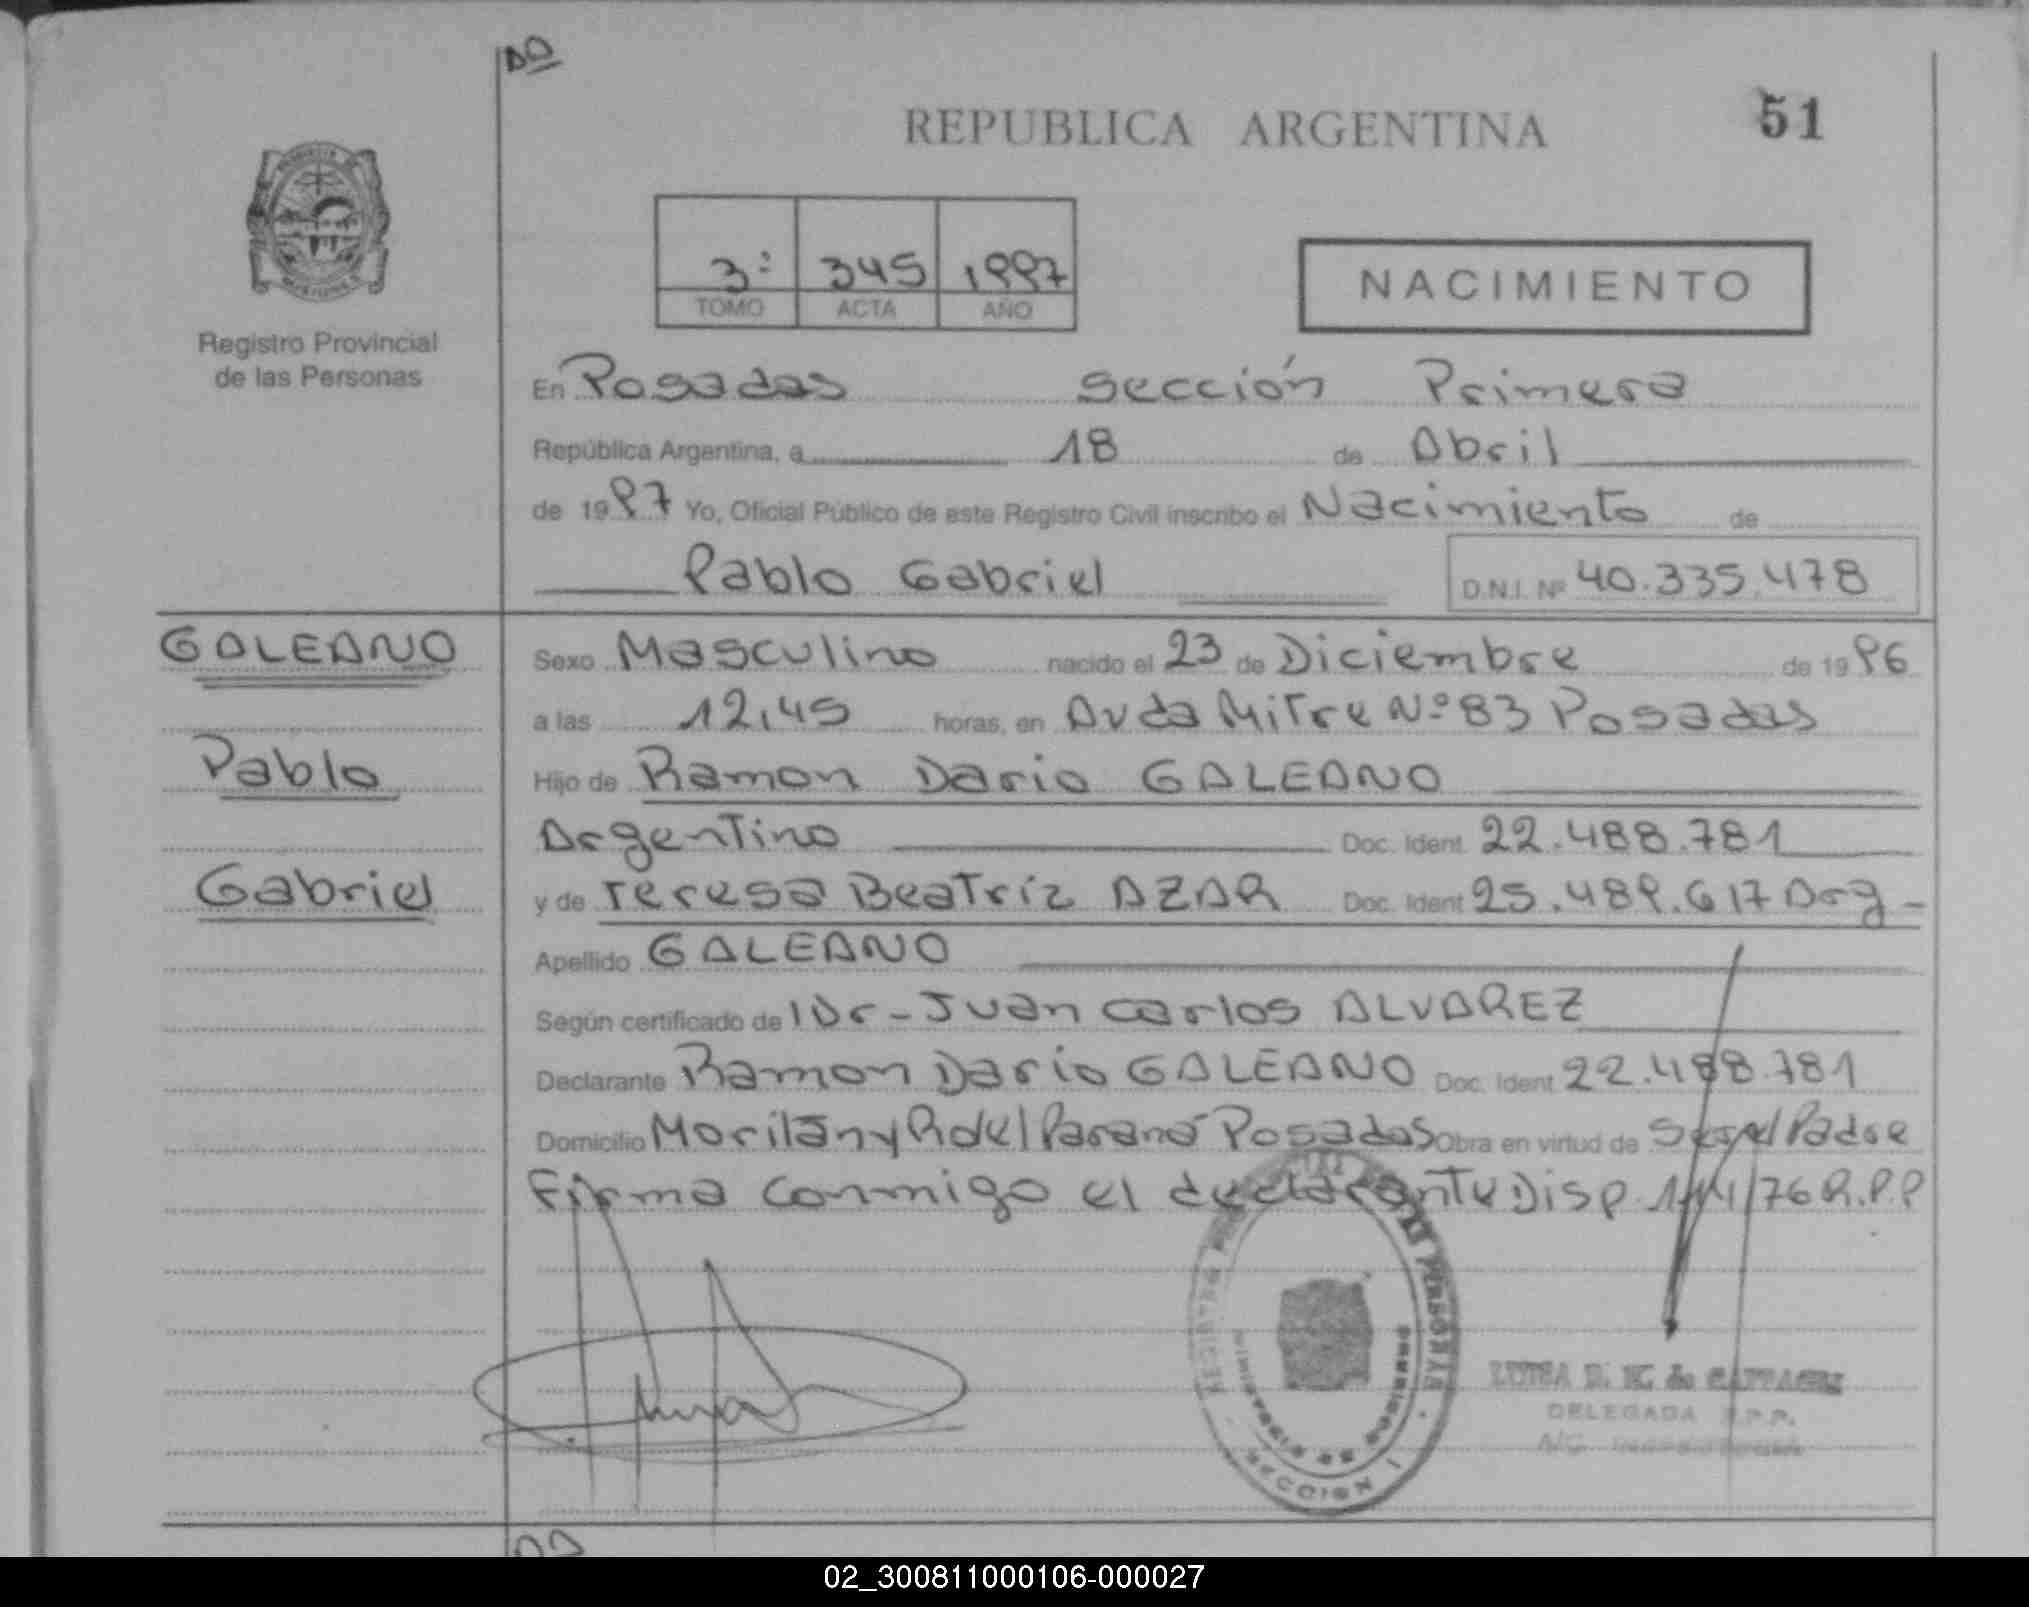 REPUBLICA ARGENTINA 51
3: 345 1997
TOMO ACTA AÑO
NACIMIENTO
Registro Provincial
de las Personas
En Posadas Sección Primera
República Argentina, a 18 de Abril
de 1997 Yo, Oficial Público de este Registro Civil inscribo el Nacimiento de
Pablo Gabriel D.N.I. Nº 40.335.478
GALEANO
Pablo
Gabriel
Sexo Masculino nacido el 23 de Diciembre de 1996
a las 12,45 horas, en Avda Mitre Nº 83 Posadas
Hijo de Ramon Dario GALEANO
Argentino Doc. Ident. 22.488.781
y de Teresa Beatriz AZAR Doc. Ident 25.489.617 Arg-
Apellido GALEANO
Según certificado de Dr- Juan Carlos ALVAREZ
Declarante Ramon Dario GALEANO Doc. Ident 22.488.781
Domicilio y Posadas Obra en virtud de Ser el Padre
Firma conmigo el declarante Disp. /76 R.P.P
SECCION I
DELEGADA R.P.P.
02_300811000106-000027